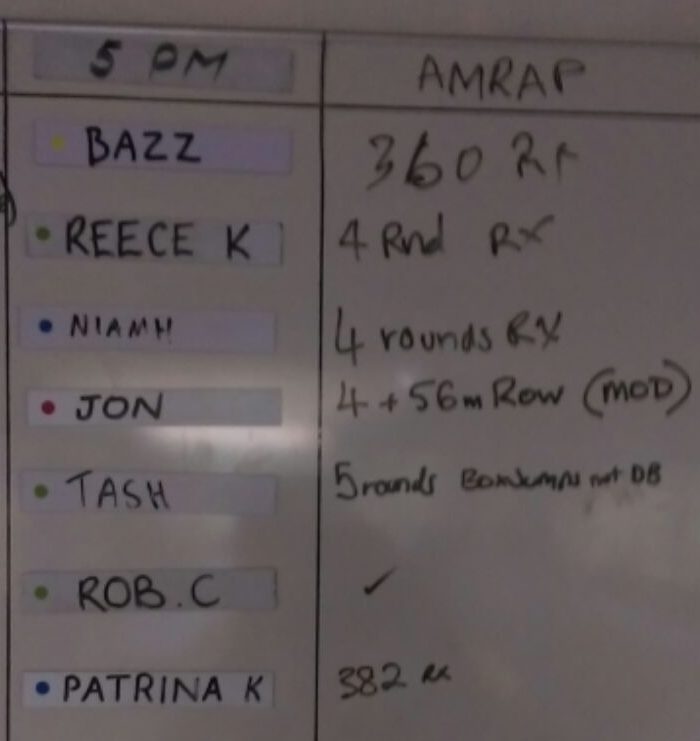 5 PM AMRAP
BAZZ 360 RX
REECE K 4 Rnd RX
NIAMH 4 rounds RX
JON 4 + 56m Row (MOD)
TASH 5 rounds Box Jumps not DB
ROB.C ✓
PATRINA K 382 RX